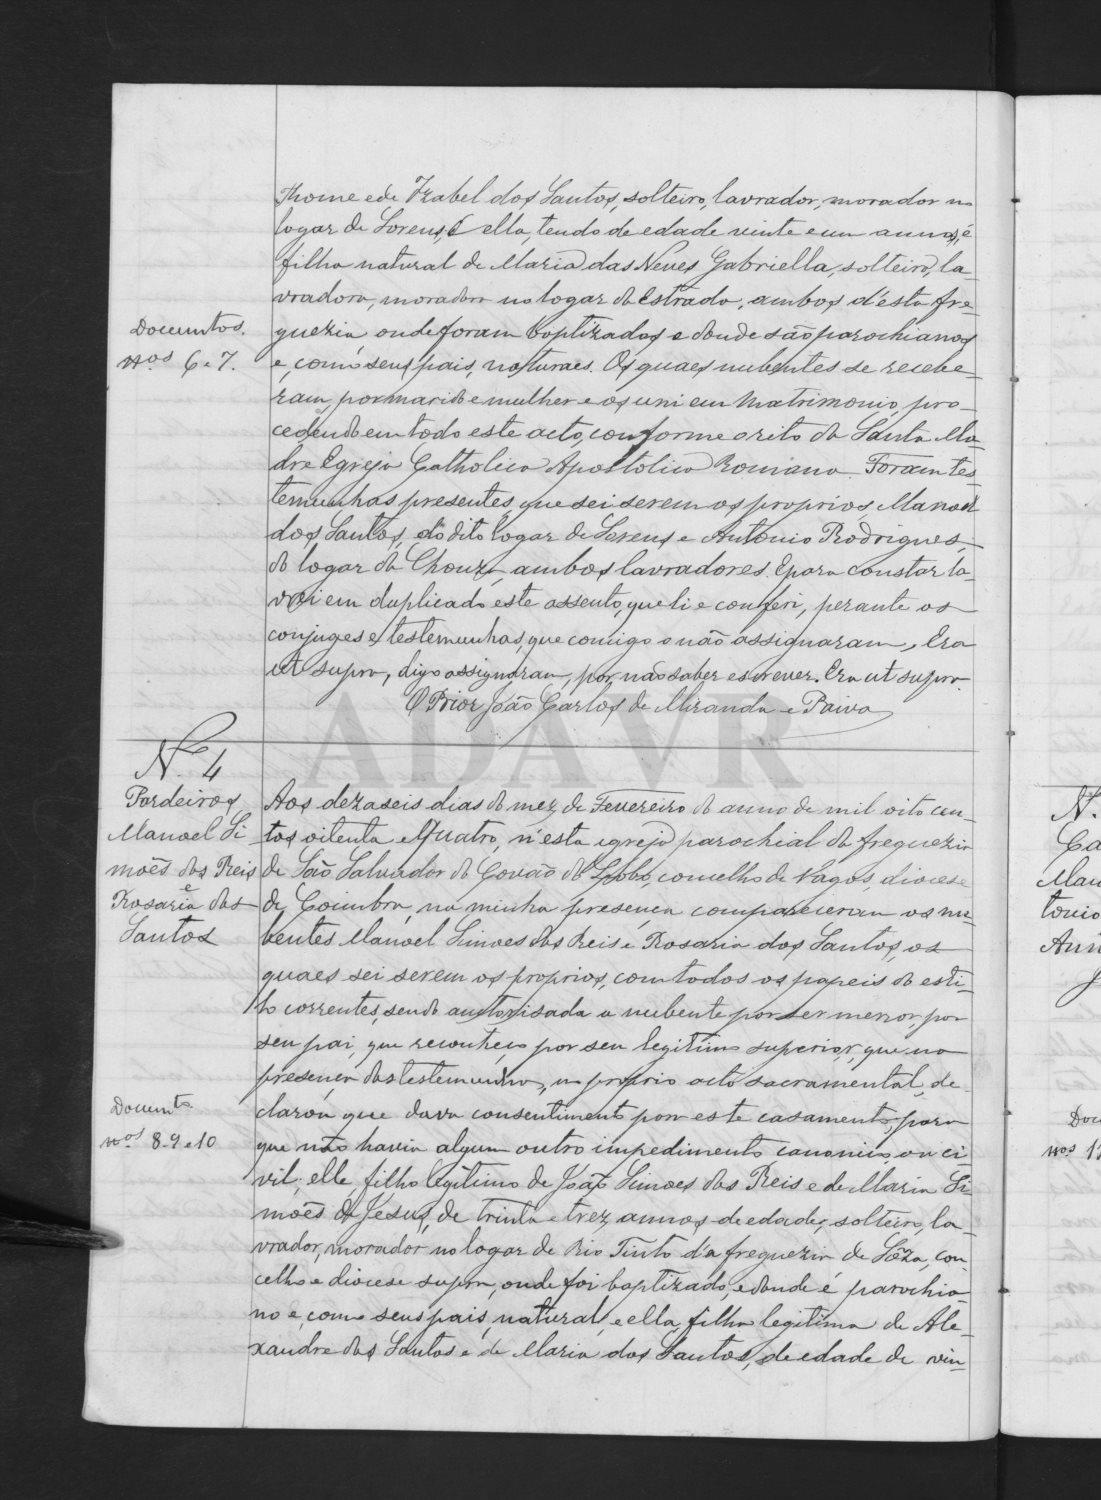 Thome e de Izabel dos Santos, solteiro, lavrador, morador no
logar de Lorens, e ella, tendo de edade vinte e um annos, é
filha natural de Maria das Neves Gabriella, solteira, la-
vradora, moradora no logar da Estrada, ambos d'esta fre-
guezia onde foram baptizados e donde são parochianos
e, como seus pais, naturaes. Os quaes nubentes se recebe-
ram por marido e mulher e os uni em Matrimonio, pro-
cedendo em todo este acto, conforme o rito da Santa Ma
dre Egreja Catholica Apostolica Romana. Foram tes-
temunhas presentes, que sei serem os proprios, Manoel
dos Santos, do dito logar de Lorens e Antonio Rodrigues,
do logar da Chouza, ambos lavradores. E para constar la-
vrei em duplicado este assento, que li e conferi, perante os
conjuges e testemunhas, que comigo o não assignaram, Era
ut supra, digo assignaram, por não saber escrever. Era ut supra.
O Prior João Carlos de Miranda e Paiva
Documtos.
nos 6 e 7.
Nº 4
Pardeiros
Manoel Si-
mões dos Reis
e
Rosaria dos
Santos
Aos dezaseis dias do mez de Fevereiro do anno de mil oito cen-
tos oitenta e quatro, n'esta egreja parochial da freguezia
de São Salvador do Covão do Lobo, concelho de Vagos, diocese
de Coimbra, na minha presença compareceram os nu-
bentes Manoel Simoes dos Reis e Rosaria dos Santos, os
quaes sei serem os proprios, com todos os papeis do esti-
lo correntes, sendo auctorisada a nubente por ser menor, por
seu pai, que reconheço por seu legitimo superior, que na
presença das testemunhas, no proprio acto sacramental, de-
clarou que dava consentimento para este casamento, para
que não havia algum outro impedimento canonico ou ci
vil; elle filho legitimo de João Simoes dos Reis e de Maria Si-
mões de Jesus, de trinta e trez annos de edade, solteiro, la-
vrador, morador no logar de Rio Tinto da freguezia de Sôza, con-
celho e diocese supra, onde foi baptizado, e donde é parochia-
no e, como seus pais, natural, e ella, filha legitima de Ale-
xandre dos Santos e de Maria dos Santos, de edade de vin-
Documtos
nos 8. 9 e 10
ADAVR
N.
Ca
Man
tonio
Ann
Docu
nos 11